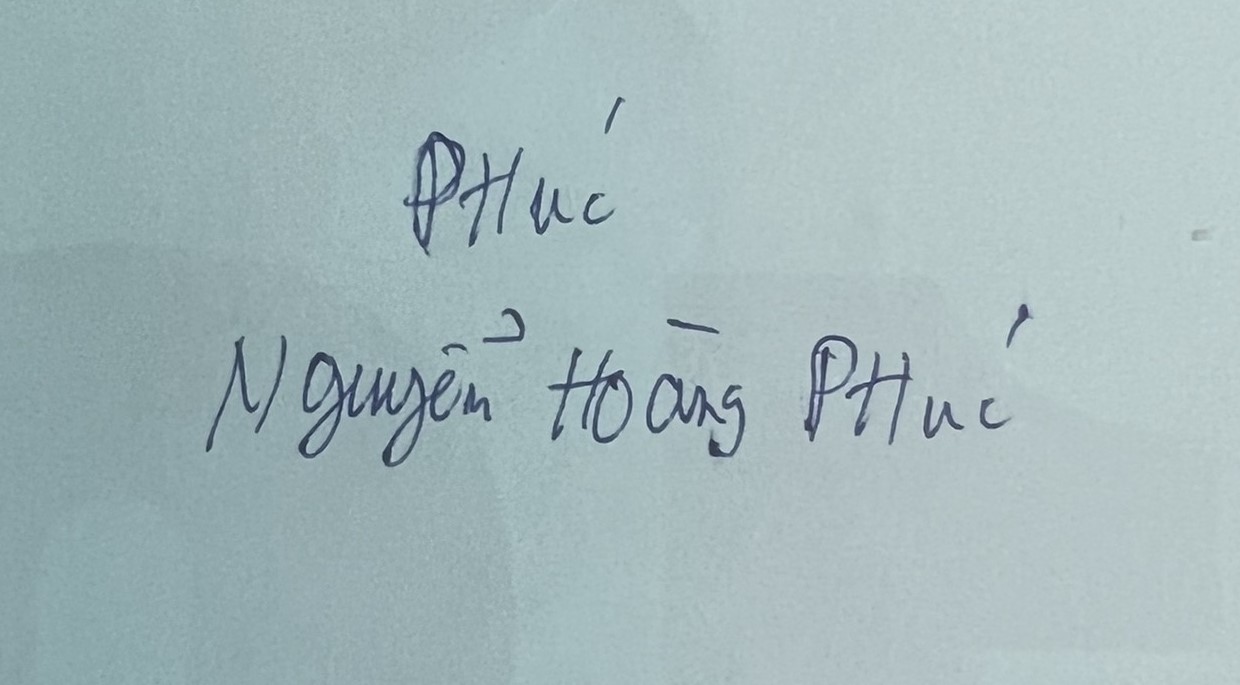 PHúc
Nguyễn Hoàng PHúc